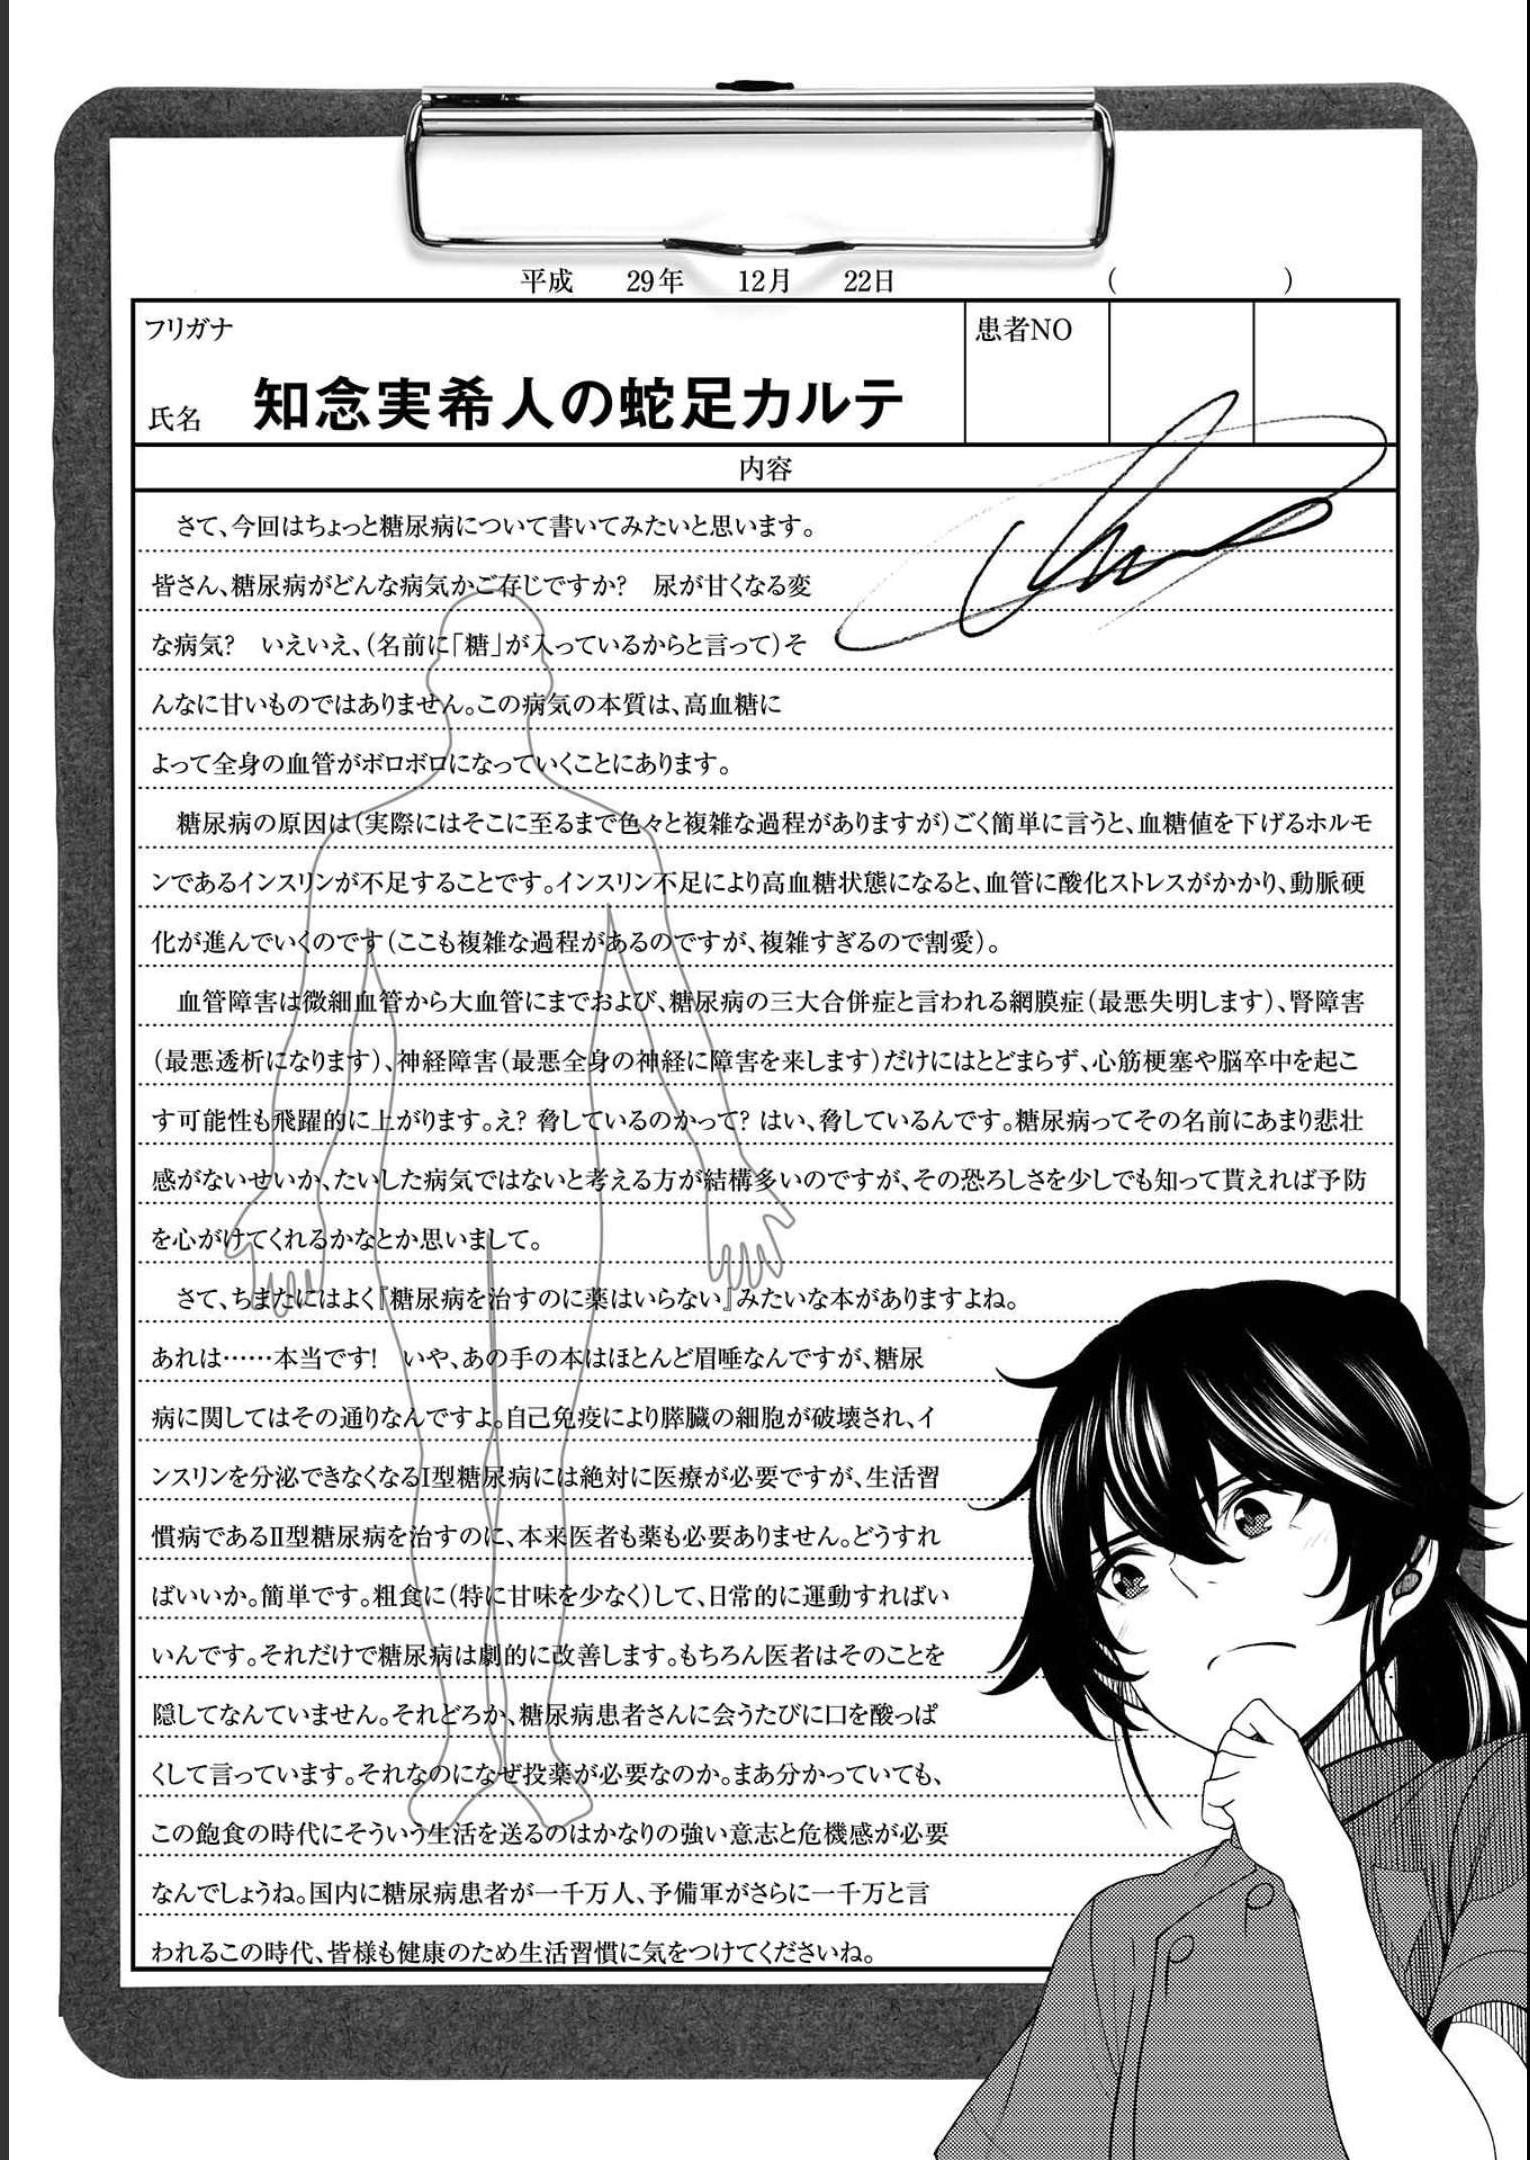 平成　29年　12月　22日　（　　　）
フリガナ
患者NO
氏名　知念実希人の蛇足カルテ
内容
　さて、今回はちょっと糖尿病について書いてみたいと思います。
皆さん、糖尿病がどんな病気かご存じですか？　尿が甘くなる変
な病気？　いえいえ、（名前に「糖」が入っているからと言って）そ
んなに甘いものではありません。この病気の本質は、高血糖に
よって全身の血管がボロボロになっていくことにあります。
　糖尿病の原因は（実際にはそこに至るまで色々と複雑な過程がありますが）ごく簡単に言うと、血糖値を下げるホルモ
ンであるインスリンが不足することです。インスリン不足により高血糖状態になると、血管に酸化ストレスがかかり、動脈硬
化が進んでいくのです（ここも複雑な過程があるのですが、複雑すぎるので割愛）。
　血管障害は微細血管から大血管にまでおよび、糖尿病の三大合併症と言われる網膜症（最悪失明します）、腎障害
（最悪透析になります）、神経障害（最悪全身の神経に障害を来します）だけにはとどまらず、心筋梗塞や脳卒中を起こ
す可能性も飛躍的に上がります。え？ 脅しているのかって？ はい、脅しているんです。糖尿病ってその名前にあまり悲壮
感がないせいか、たいした病気ではないと考える方が結構多いのですが、その恐ろしさを少しでも知って貰えれば予防
を心がけてくれるかなとか思いまして。
　さて、ちまたにはよく『糖尿病を治すのに薬はいらない』みたいな本がありますよね。
あれは……本当です！　いや、あの手の本はほとんど眉唾なんですが、糖尿
病に関してはその通りなんですよ。自己免疫により膵臓の細胞が破壊され、イ
ンスリンを分泌できなくなるⅠ型糖尿病には絶対に医療が必要ですが、生活習
慣病であるⅡ型糖尿病を治すのに、本来医者も薬も必要ありません。どうすれ
ばいいか。簡単です。粗食に（特に甘味を少なく）して、日常的に運動すればい
いんです。それだけで糖尿病は劇的に改善します。もちろん医者はそのことを
隠してなんていません。それどろか、糖尿病患者さんに会うたびに口を酸っぱ
くして言っています。それなのになぜ投薬が必要なのか。まあ分かっていても、
この飽食の時代にそういう生活を送るのはかなりの強い意志と危機感が必要
なんでしょうね。国内に糖尿病患者が一千万人、予備軍がさらに一千万と言
われるこの時代、皆様も健康のため生活習慣に気をつけてくださいね。